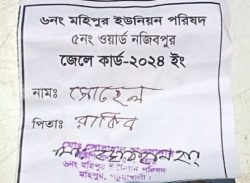 ৬নং মহিপুর ইউনিয়ন পরিষদ
৫নং ওয়ার্ড নজিবপুর
জেলে কার্ড-২০২৪ ইং
নামঃ সোহেল
পিতাঃ রাকিব
৬নং মহিপুর ইউনিয়ন পরিষদ
মহিপুর, পটুয়াখালী।